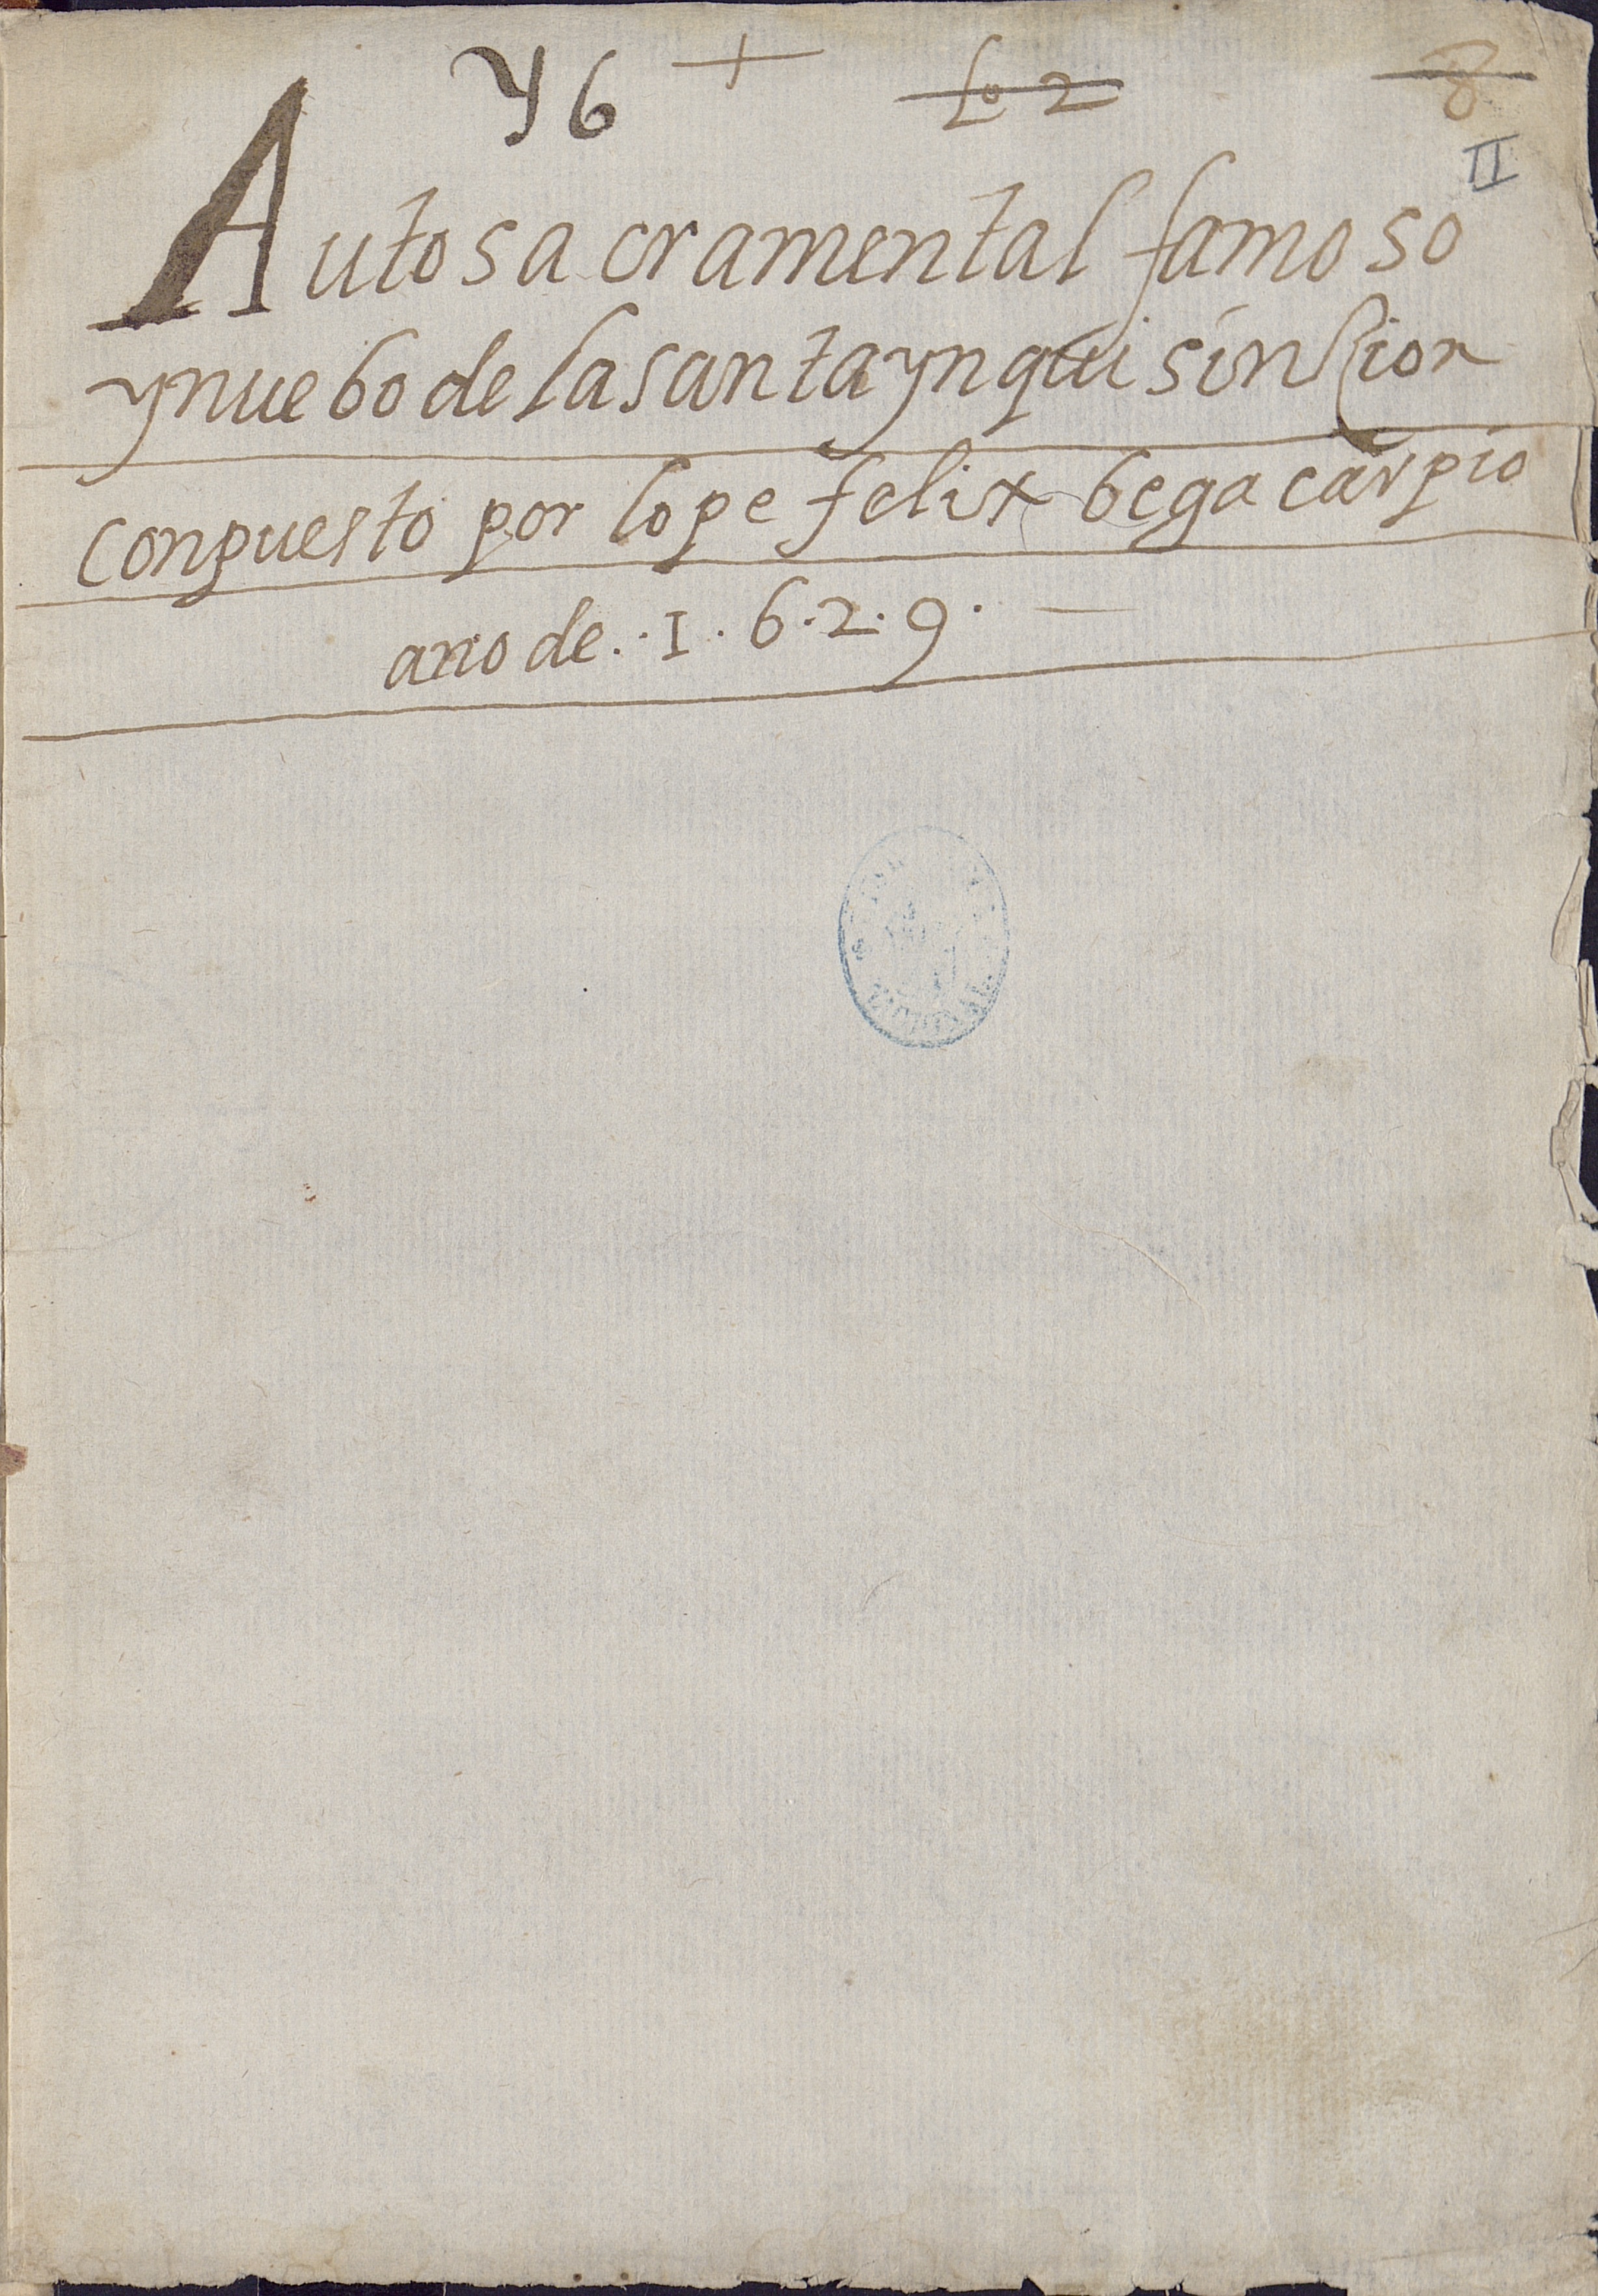 Y6 + fo 2 8
II
Auto sacramental famoso
y nuebo de la santa ynquisinçion
conpuesto por lope felix bega carpio
ano de . 1 . 6 . 2 . 9 .